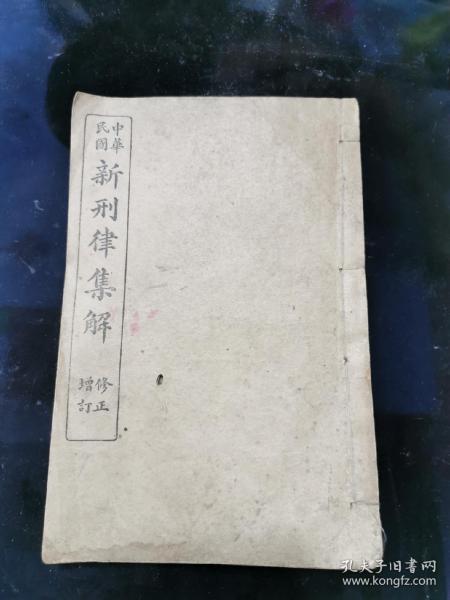 中華
民國
新刑律集解
修正
增訂
孔夫子旧书网
www.kongfz.com